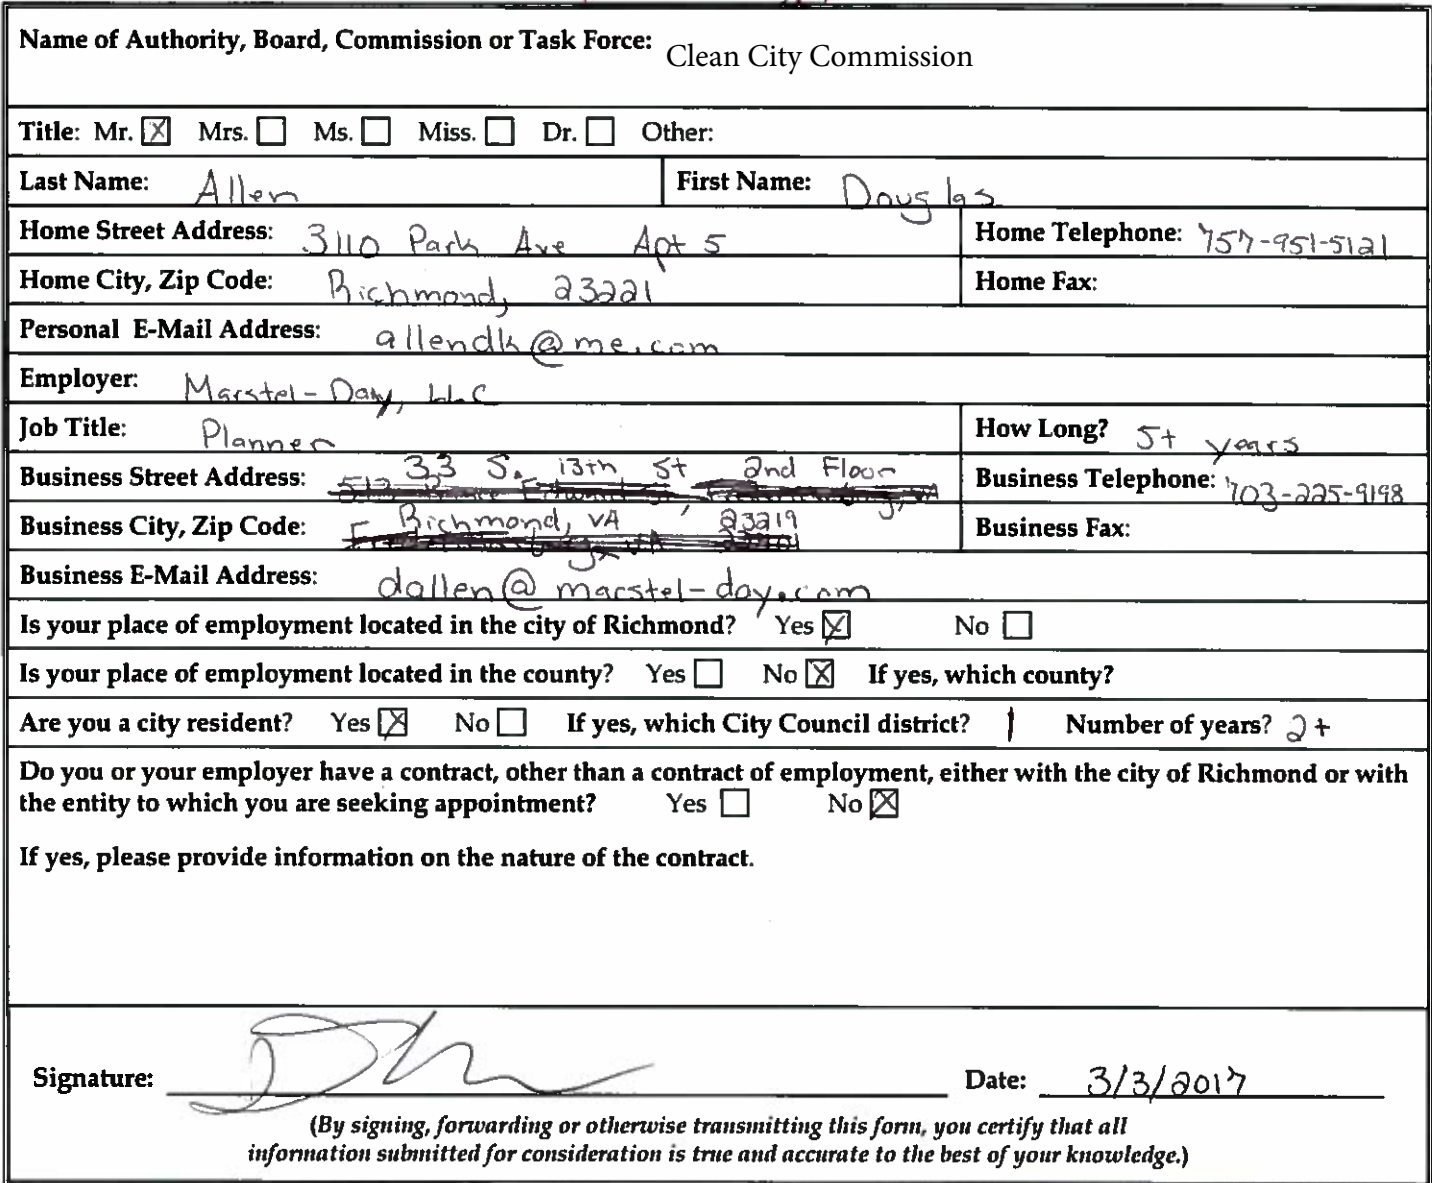 Name of Authority, Board, Commission or Task Force: Clean City Commission
Title: Mr. ☒ Mrs. ☐ Ms. ☐ Miss. ☐ Dr. ☐ Other:
Last Name: Allen First Name: Douglas
Home Street Address: 3110 Park Ave Apt 5 Home Telephone: 757-951-5121
Home City, Zip Code: Richmond, 23221 Home Fax:
Personal E-Mail Address: allendk@me.com
Employer: Marstel-Day, LLC
Job Title: Planner How Long? 5+ years
Business Street Address: 33 S. 13th St 2nd Floor Business Telephone: 703-225-9198
Business City, Zip Code: Richmond, VA 23219 Business Fax:
Business E-Mail Address: dallen@marstel-day.com
Is your place of employment located in the city of Richmond? Yes ☒ No ☐
Is your place of employment located in the county? Yes ☐ No ☒ If yes, which county?
Are you a city resident? Yes ☒ No ☐ If yes, which City Council district? 1 Number of years? 2+
Do you or your employer have a contract, other than a contract of employment, either with the city of Richmond or with
the entity to which you are seeking appointment? Yes ☐ No ☒
If yes, please provide information on the nature of the contract.
Signature: Date: 3/3/2017
(By signing, forwarding or otherwise transmitting this form, you certify that all
information submitted for consideration is true and accurate to the best of your knowledge.)